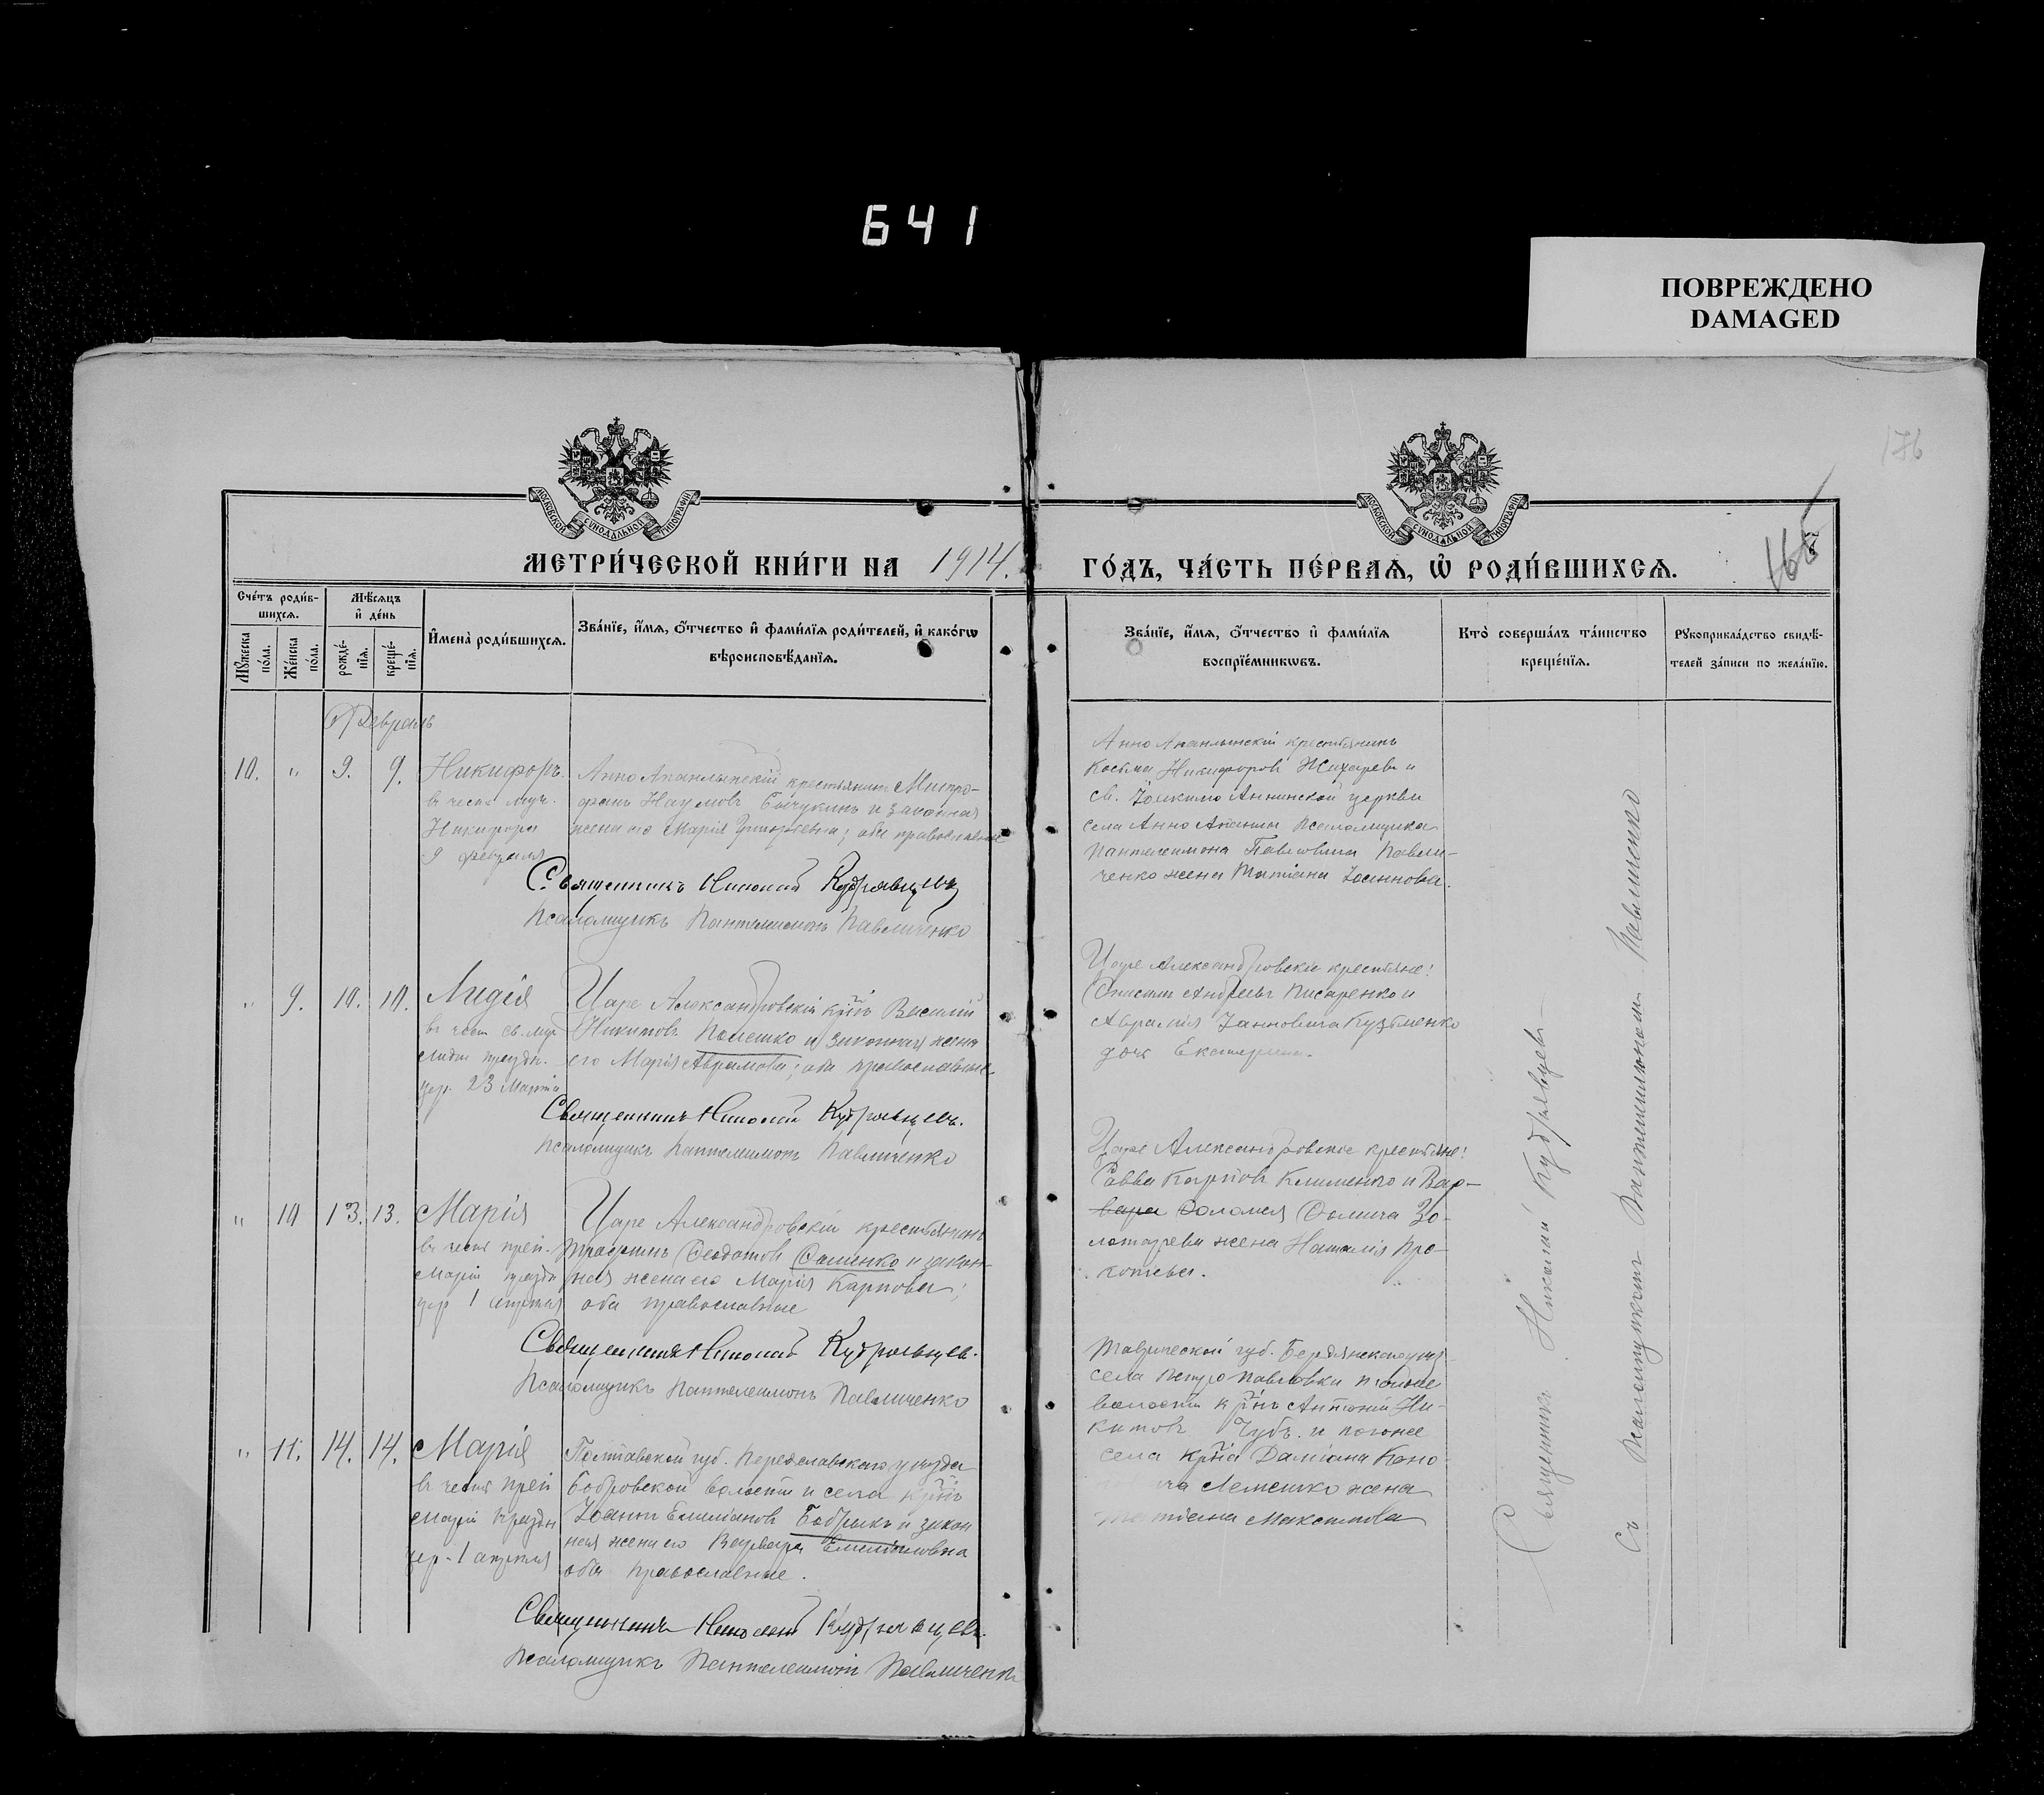 641
ПОВРЕЖДЕНО
DAMAGED
176
165
МОСКОВСКОЙ СУНОДАЛЬНОЙ ТИПОГРАФІИ
МОСКОВСКОЙ СУНОДАЛЬНОЙ ТИПОГРАФІИ
МЕТРИ́ЧЕСКОЙ КНИ́ГИ НА 1914.
ГО́ДЪ, ЧА́СТЬ ПЕ́РВАѦ, Ѡ҆ РОДИ́ВШИХСѦ.
Сче́тъ роди́в-
шихсѧ.
Мꙋ́жеска
по́ла.
Же́нска
по́ла.
Мѣ́сѧцъ
и҆ де́нь
рожде́-
нїѧ.
креще́-
нїѧ.
И҆мена̀ роди́вшихсѧ.
Зва́нїе, и҆́мѧ, ѻ҆́тчество и҆ фами́лїѧ роди́телей, и҆ како́гѡ
вѣроисповѣ́данїѧ.
Зва́нїе, и҆́мѧ, ѻ҆́тчество и҆ фами́лїѧ
воспрїе́мникѡвъ.
Кто̀ соверша́лъ та́инство
креще́нїѧ.
Рꙋкоприкла́дство свидѣ́-
телей за́писи по жела́нїю.
Февраль
10. " 9. 9.
Никифоръ
въ честь муч.
Никифора
9 февраля
крестьянинъ Митро-
фанъ Наумовъ и законная
жена его Марія Григорьева; оба православные
Священникъ Николай Кудрявцевъ
Псаломщикъ Пантелеимонъ Павличенко
крестьянинъ
Косьма Никифоровъ Жихаревъ и
св. Іоакимо Аннинской церкви
села псаломщика
Пантелеимона Павловича Павли-
ченко жена Татіана Іоаннова.
" 9. 10. 10.
Лидія
въ честь св. муч.
Лидіи праздн.
23 Марта
Царе Александровскій кр-нъ Василій
Никитовъ Полешко и законная жена
его Марія Аврамова; оба православные.
Священникъ Николай Кудрявцевъ.
Псаломщикъ Пантелеимонъ Павличенко
Царе Александровскіе крестьяне:
Андреевъ Писаренко и
Аврамія Іанновича Кузьменко
дочь Екатерина.
" 10 13. 13.
Марія
въ честь преп.
Маріи праздн
1 апреля
Царе Александровскій крестьянинъ
Феодотовъ и закон-
ная жена его Марія Карпова;
оба православные
Священникъ Николай Кудрявцев.
Псаломщикъ Пантелеимонъ Павличенко
Царе Александровскіе крестьяне:
Савва Карповъ Клименко и Вар-
вара Соломея Зо-
лотарева жена Наталія Про-
копьева.
" 11. 14. 14.
Марія
въ честь преп
Маріи праздн
1 апреля
Полтавской губ. Переяславскаго уезда
Бобровской волости и села кр-нъ
Іоаннъ Емеліановъ Бобрикъ и закон
ная жена его Варвара Емеліановна
оба православные.
Священникъ Николай Кудрявцевъ.
Псаломщикъ Пантелеимонъ Павличенко
Таврической губ. Бердянскаго уез
села Петро Павловки тойже
волости кр-нъ Антоній Ни-
китовъ Чубъ и тогоже
села кр-на Даміана Коно
ча Лемешко жена
Татіана Максимова
Священникъ Николай Кудрявцевъ
Съ Псаломщикомъ Пантелеимономъ Павличенко